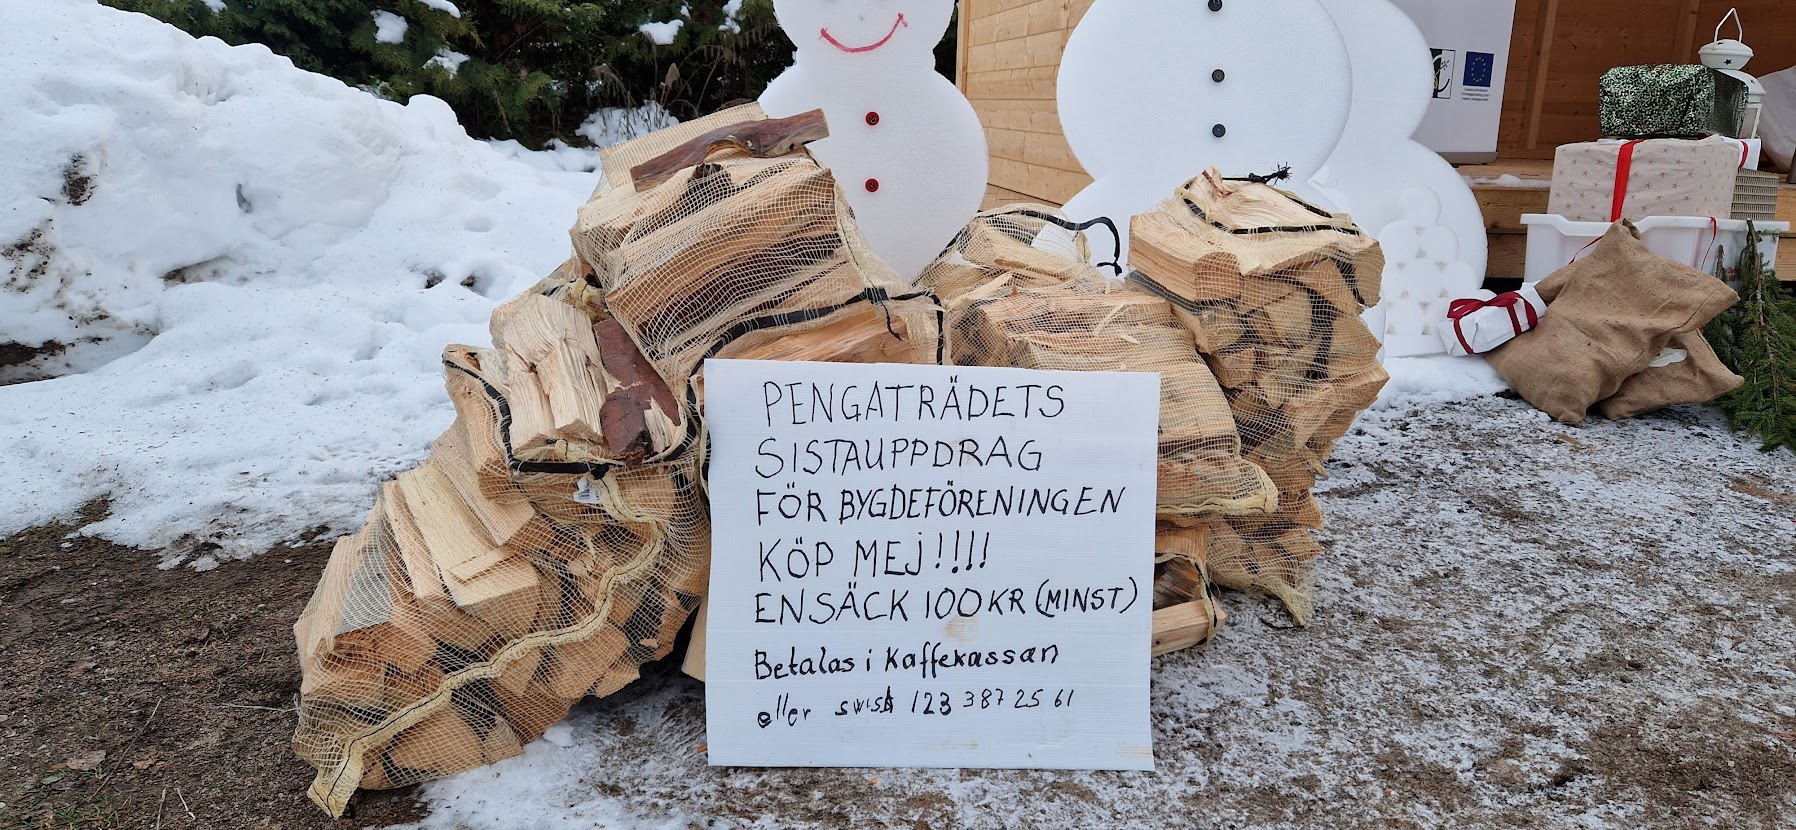 PENGATRÄDETS
SISTAUPPDRAG
FÖR BYGDEFÖRENINGEN
KÖP MEJ!!!!
ENSÄCK 100KR (MINST)
Betalas i Kaffekassan
eller swish 123 387 25 61